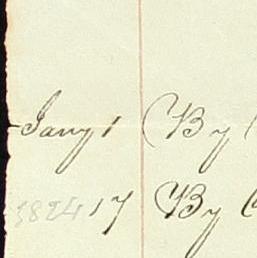 Jany 1 By
1824 17 By